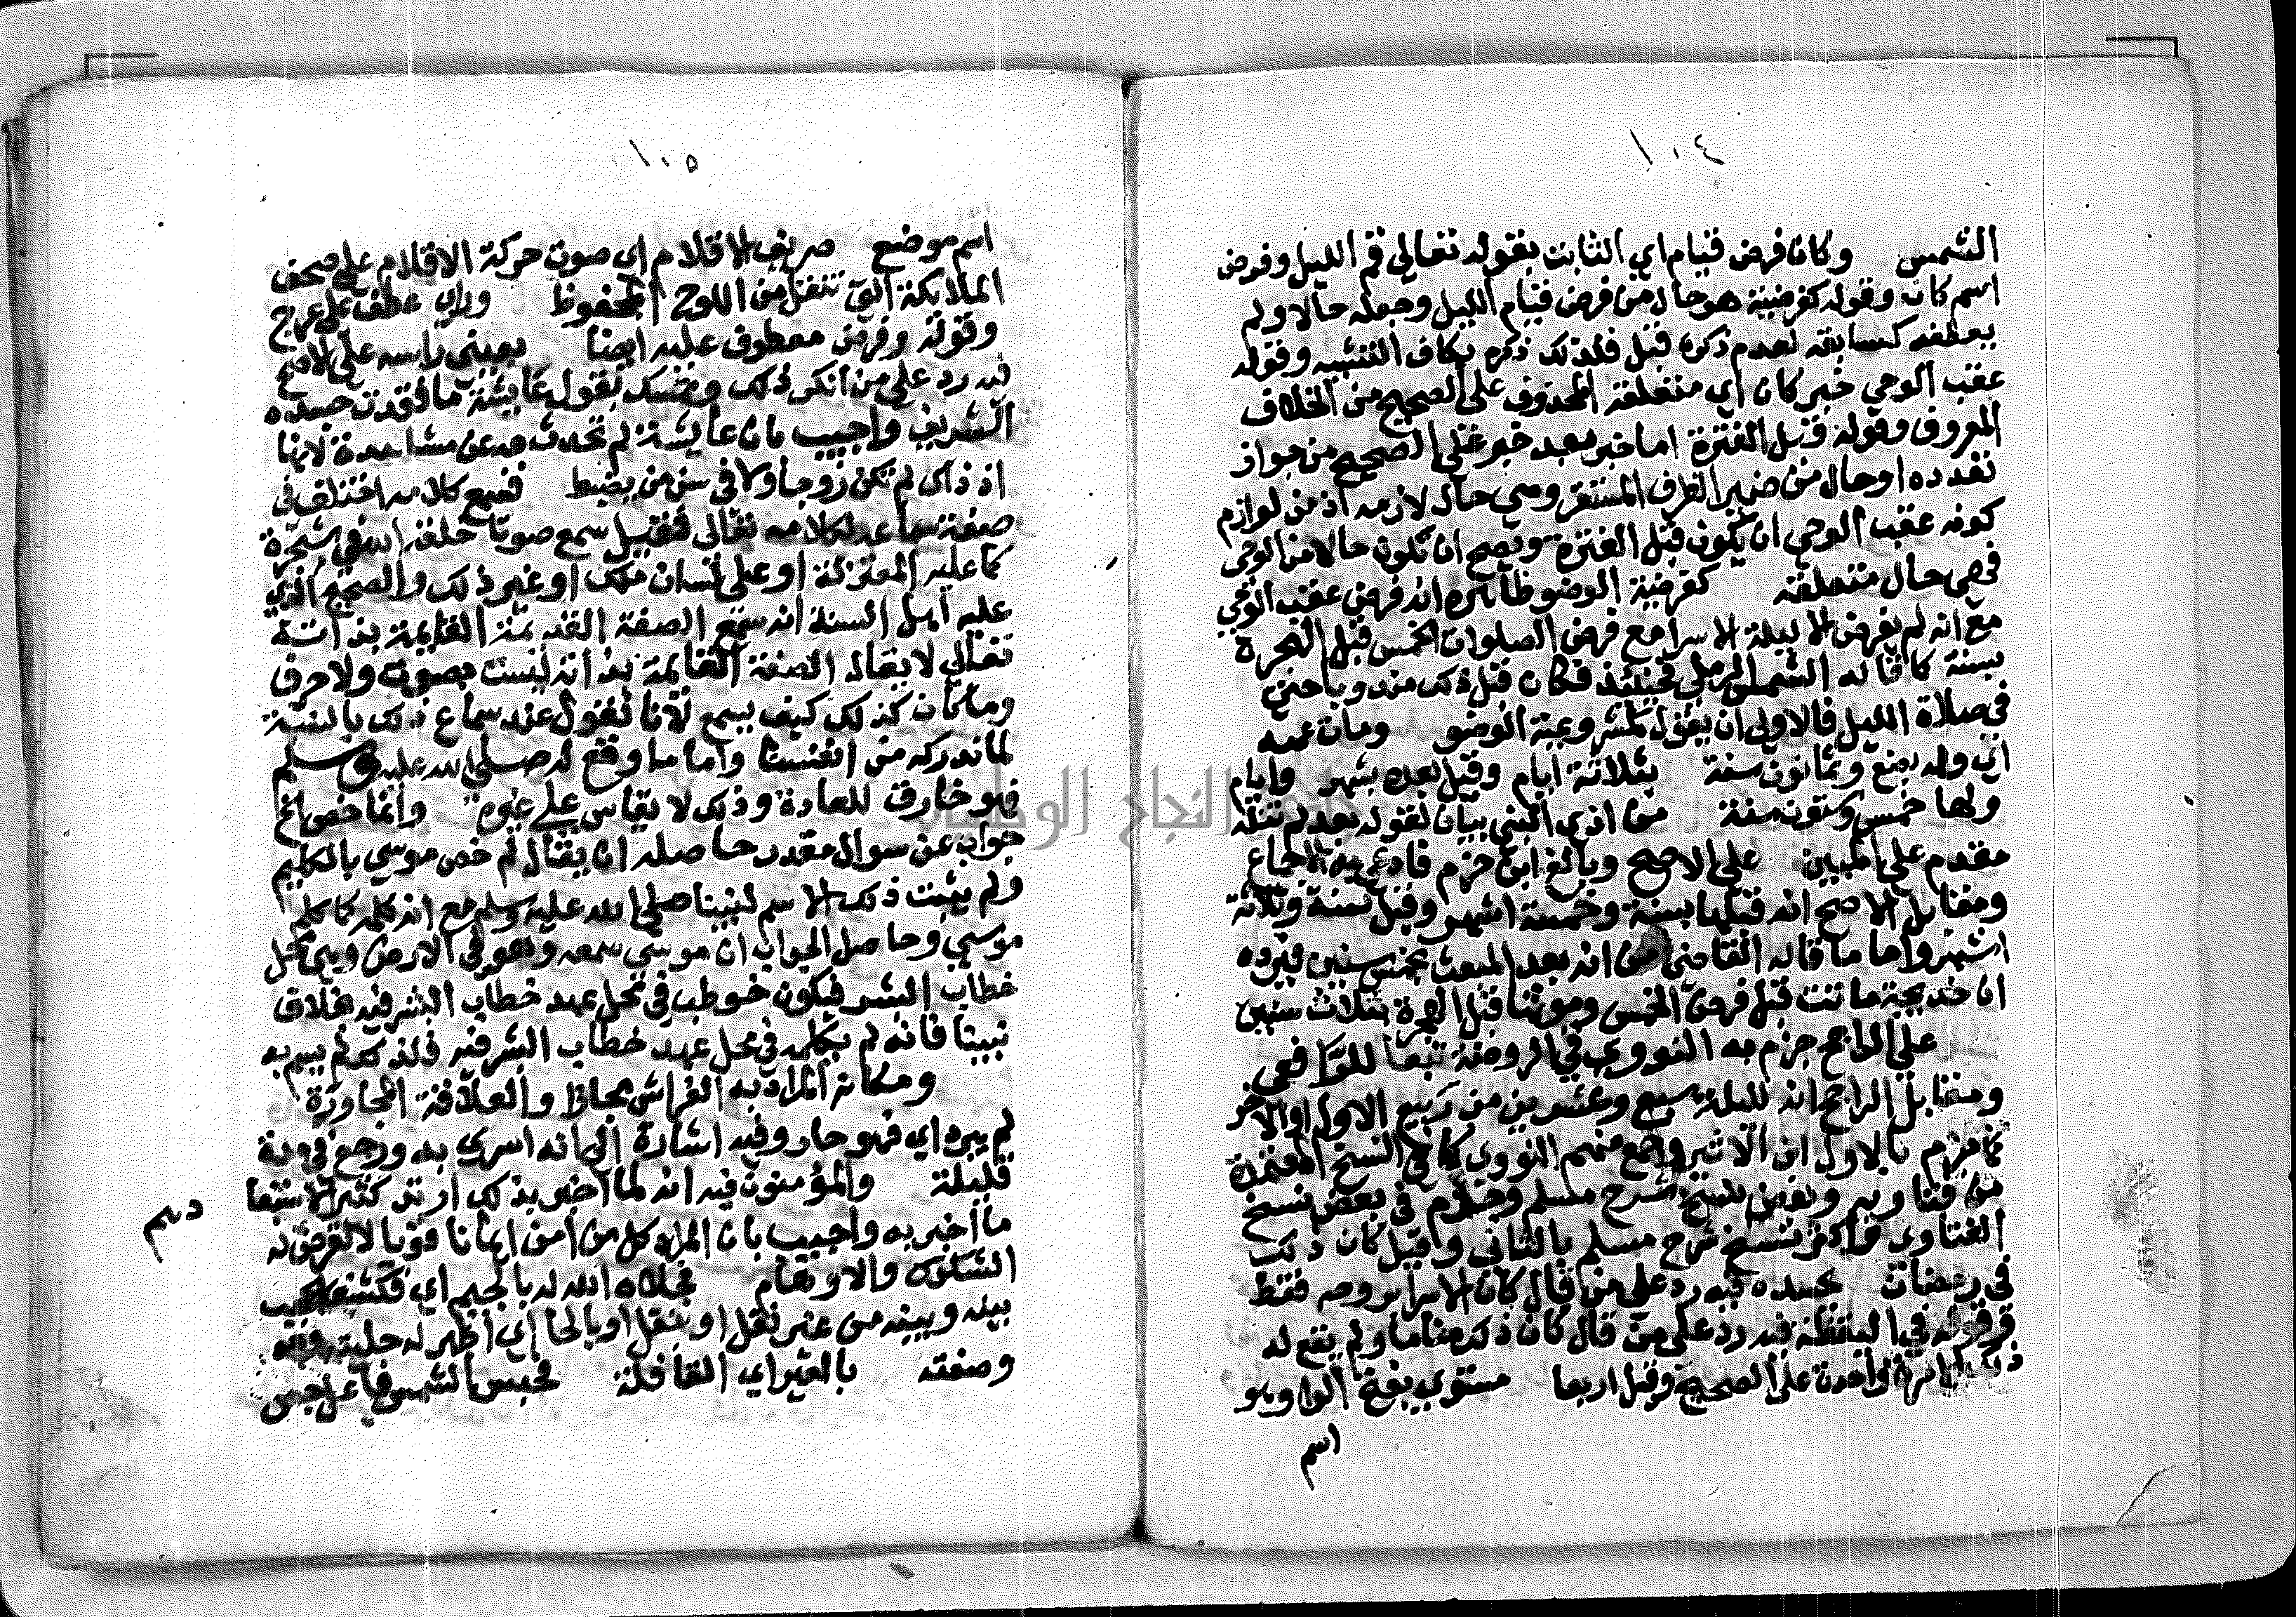 ١٠٤
الشمس وكان فرض قيام اي الثابت بقوله تعالي قم الليل وفرض
اسم كان وقوله كفرضية هو حال من فرض قيام الليل وجعله حالا ولم
يعطفه كسابقه لعدم ذكره قبل فلذلك ذكره بكاف التشبيه وقوله
عقب الوحي خبر كان اي متعلقة المحذوف على الصحيح من الخلاف
المعروف وقوله قبل الفترة اما خبر بعد خبر على الصحيح من جواز
تعدده او حال من ضمير الظرف المستقر وهي حال لازمه اذ من لوازم
كونه عقب الوحي ان يكون قبل الفترة ويصح ان تكون حالا من الوحي
فهي حال متعلقة كفرضية الوضو ظاهره انه فرض عقب الوحي
مع انه لم يفرض الا ليلة الاسرا مع فرض الصلوات الخمس قبل الهجرة
بسنة كما قاله الشمس الرملي فحينئذ فكان قبل ذلك مندوبا حتى
في صلاة الليل فالاولى ان يقول كمشروعية الوضو ومات عمه
اي وله بضع وثمانون سنة بثلاثة ايام وقيل بعده بشهر وايام
ولها خمس وستون سنة من اذي النبي بيان لقوله بعد لم تنله
مقدم علي المبين علي الاصح وبالغ ابن حزم فادعى فيه الاجماع
ومقابل الاصح انه قبلها بسنة وخمسة اشهر وقيل بسنة وثلاثة
اشهر واما ما قاله القاضي من انه بعد المبعث بخمس سنين فيرده
ان خديجة ماتت قبل فرض الخمس وموتها قبل الهجرة بثلاث سنين
علي الراجح جزم به النووي في الروضة تبعا للرافعي
ومقابل الراجح انه لليلة سبع وعشرين من ربيع الاول او الاخر
كما جزم بالاول ابن الاثير وجمع منهم النووي كما في النسخ المعتمدة
من فتاويه وبعض نسخ شرح مسلم وجزم في بعض نسخ
الفتاوي واكثر نسخ شرح مسلم بالثاني وقيل كان ذلك
في رمضان بجسده فيه رد على من قال كان الاسرا بروحه فقط
قوله في اليقظة فيه رد على من قال كان ذلك مناما ولم يقع له
ذلك الا مرة واحدة على الصحيح وقيل اربعا مستوى بفتح الواو وهو
اسم
١٠٥
اسم موضع صريف الاقلام اي صوت حركة الاقلام علي صحف
الملايكة التي تنقل من اللوح المحفوظ وراي عطف على عرج
وقوله وفرض معطوف عليه ايضا بعيني راسه على الاصح
فيه رد علي من انكر ذلك وتمسك بقول عايشة ما فقدت جسده
الشريف واجيب بان عايشة لم تحدث به عن مشاهدة لانها
اذ ذاك لم تكن زوجا ولا في سن من يضبط فسمع كلامه اختلف في
صفة سماعه لكلامه تعالى فقيل سمع صوتا خلقه الله في شجرة
كما عليه المعتزلة او على لسان ملك او غير ذلك والصحيح الذي
عليه اهل السنة انه سمع الصفة القديمة القايمة بذاته
تعالي لا يقال الصفة القايمة بذاته ليست بصوت ولا حرف
وما كان كذلك كيف يسمع لانا نقول عدم سماع ذلك بالنسبة
لما ندركه من انفسنا واما ما وقع له صلى الله عليه وسلم
فهو خارق للعادة وذلك لا يقاس علي غيره وانما خص الخ
جواب عن سوال مقدر حاصله ان يقال لم خص موسي بالكليم
ولم يثبت ذلك الاسم لنبينا صلي الله عليه وسلم مع انه كلمه كما كلم
موسي وحاصل الجواب ان موسي سمعه وهو في الارض وهي محل
خطاب البشر فيكون خوطب في محل عهد خطاب البشر فيه بخلاف
نبينا فانه لم يكلمه في محل عهد خطاب البشر فيه فلذلك لم يسم به
ومكانه المراد به الفراش مجازا والعلاقة المجاورة
لم يبرد اي فهو حار وفيه اشارة الى انه اسرى به ورجع في مدة
قليلة والمؤمنون فيه انه لما اخبر بذلك ارتد كثير لاستبعا
ما اخبر به واجيب بان المراد كل من امن ايمانا قويا لا تعرض له
الشكوك والاوهام فجلاه الله له بالجيم اي فكشف الحجب
بينه وبينه من غير نقل او بنقل او بالحا اي اظهر له حليته وهي
وصفته بالعير اي القافلة فحبس الشمس فاعل حبس
دسم